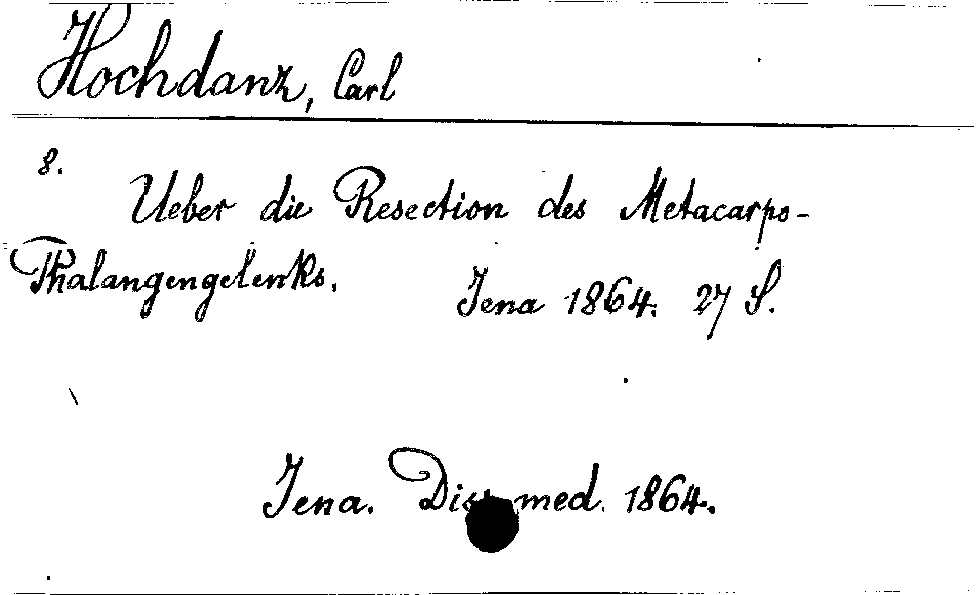 Hochdanz, Carl
8.
Ueber die Resection des Metacarpo-
Phalangengelenks.
Jena 1864. 27 S.
Jena. Diss. med. 1864.